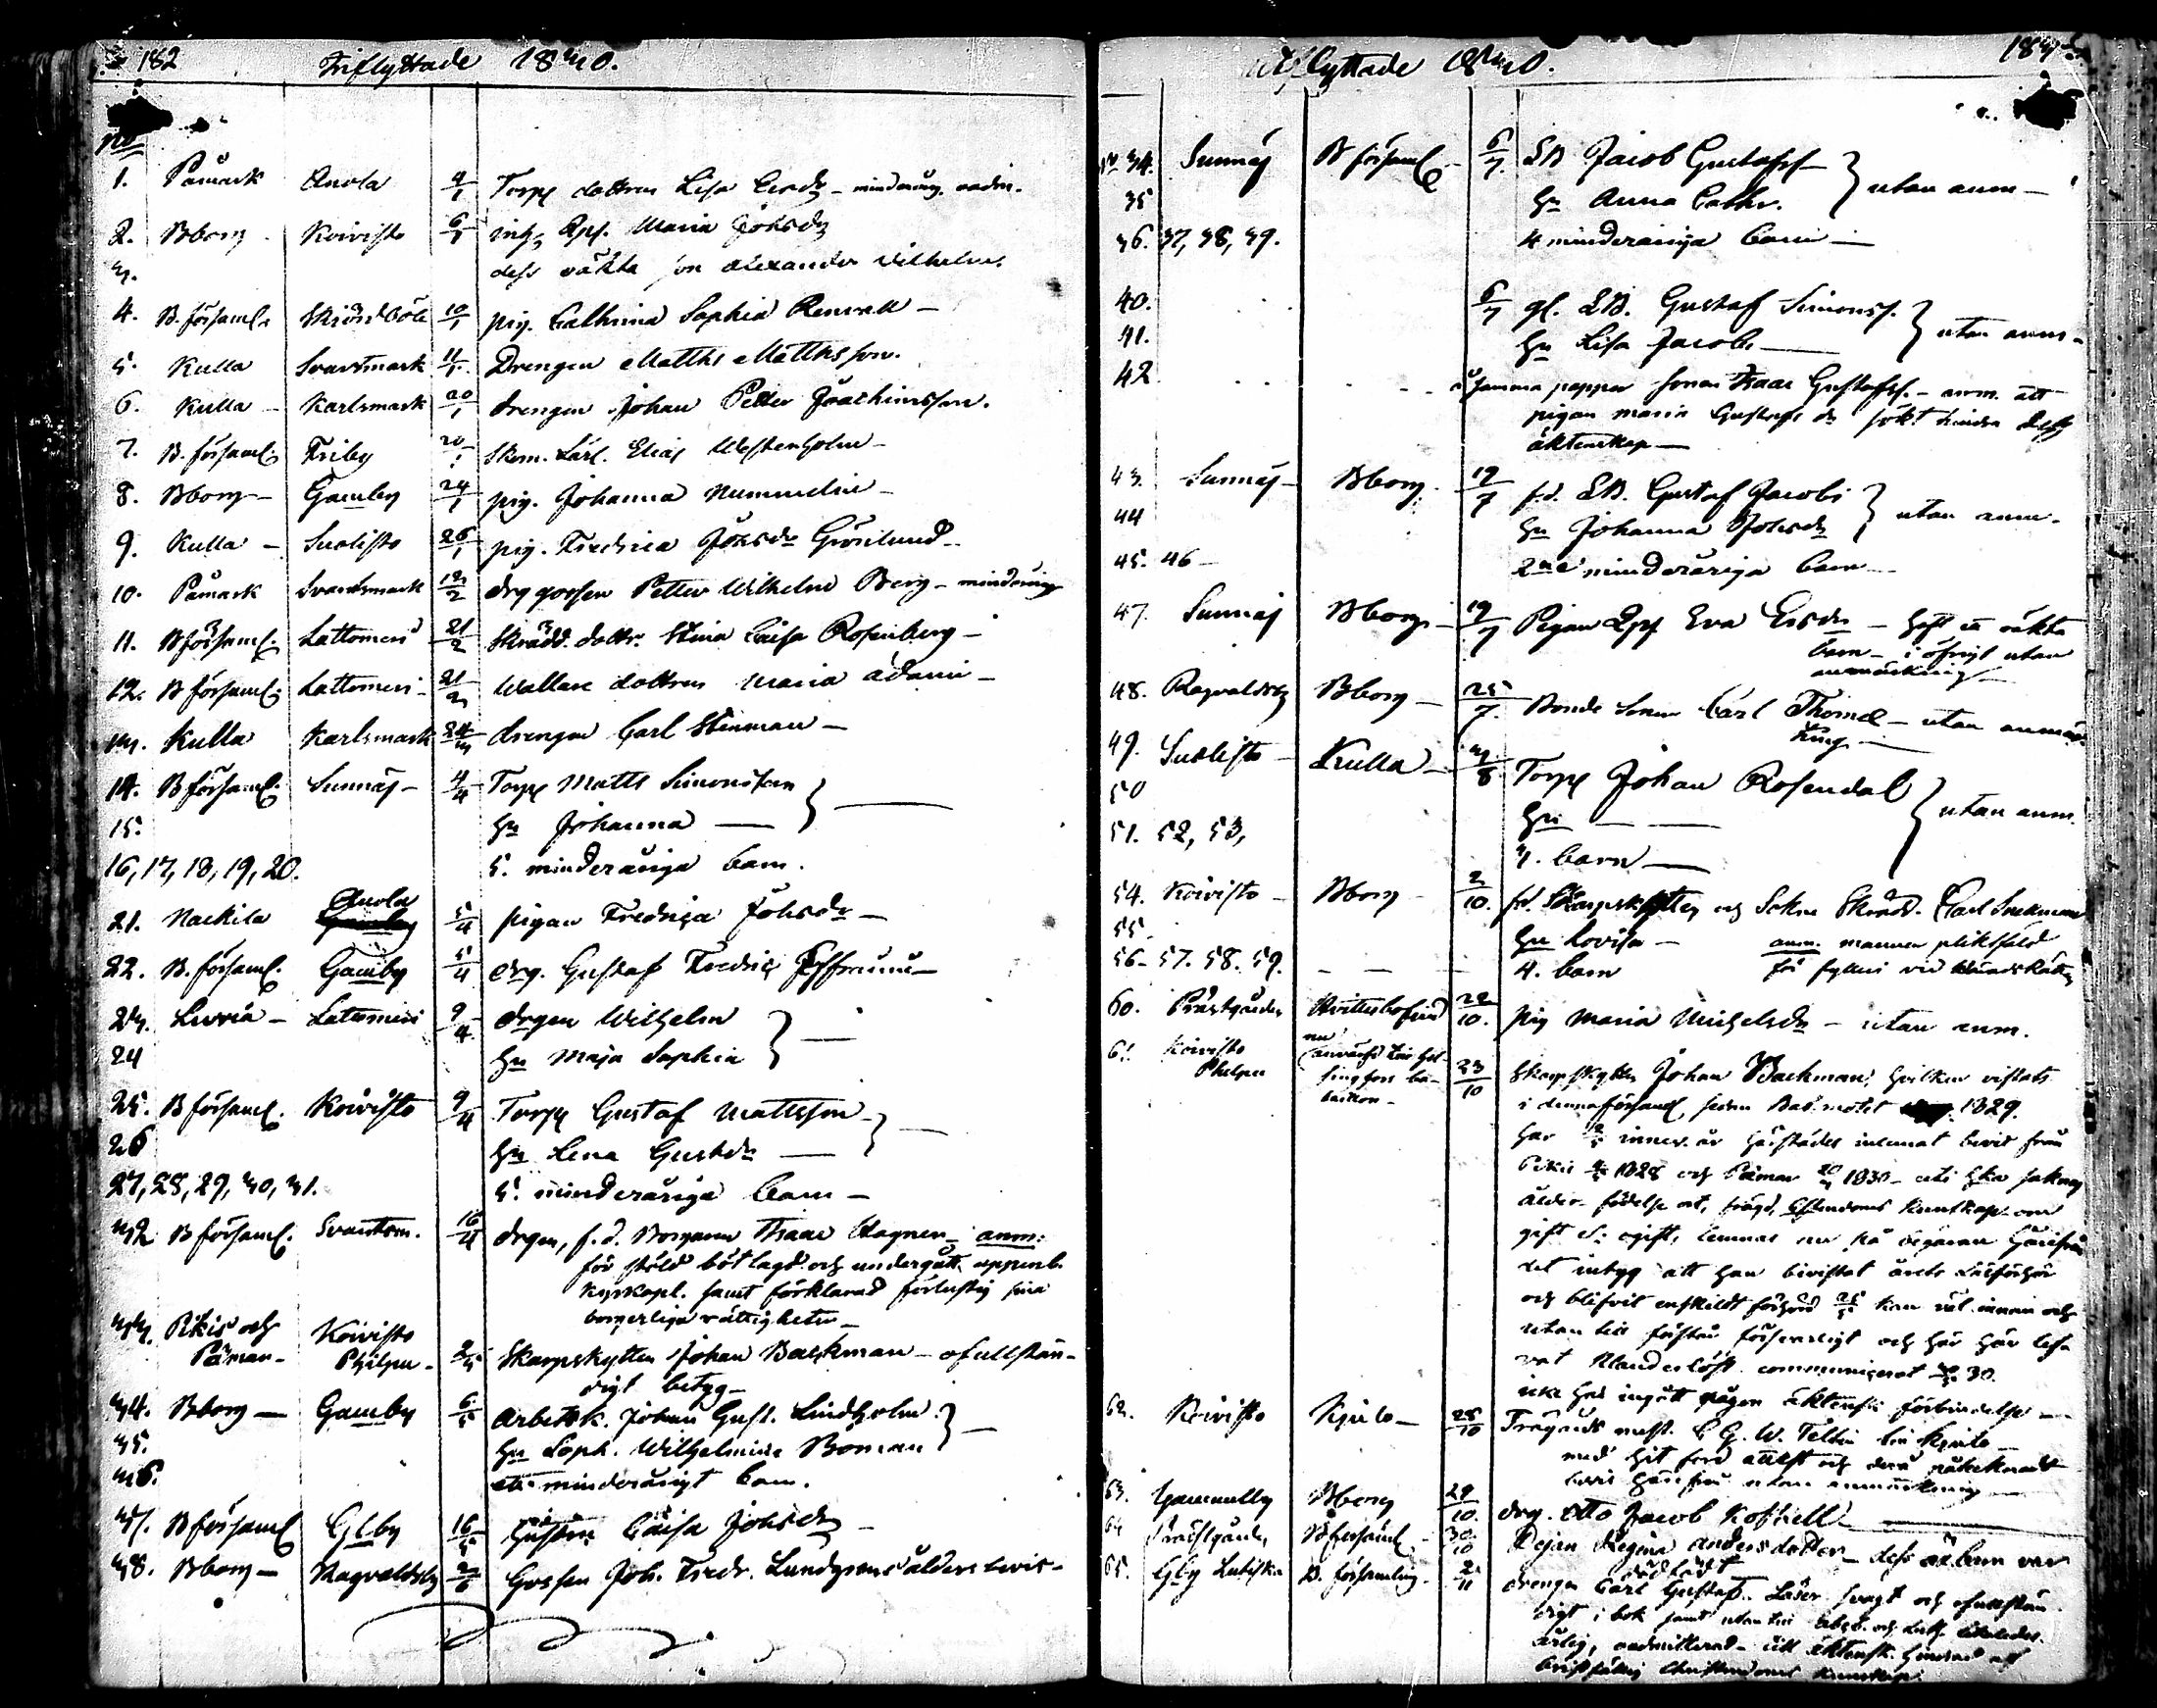 182 Inflyttade 1830.
No
1. Påmark Anola 4/1 Torp dottren Lisa Ersdr - minderårig
2. Bborg Koivisto 6/1 Maria Johsdr
3. dess oäkta son Alexander Wilhelm.
4. B. församl. 10/1 pig. Cathrina Sophia Renvall -
5. Kulla Svartsmark 11/1 Drengen Matths Matthsson.
6. Kulla - Karlsmark 20/1 drengen Johan Petter Joachimsson.
7. B. församl. Friby 20/1 Skom. Lärl. Elias Westerholm -
8. Bborg - Gamby 24/1 pig. Johanna Nummelin -
9. Kulla - Suolisto 26/1 pig. Fredrica Johsdr Grönlund -
10. Påmark Svartsmark 12/2 drg gossen Petter Wilhelm Berg - minderårig
11. B församl. Lattomeri 21/2 Skrädd. dottr. Stina Caisa Rosenberg -
12. B församl. Lattomeri - 21/2 Wallare dottren Maria Adami -
13. Kulla Karlsmark 24/3 drengen Carl Stenman -
14. B församl. Sunnäs - 4/4 Torp Matts Simonsson
15. Hu Johanna -
16, 17, 18, 19, 20. 5. minderåriga barn.
21. Nackila Anola 5/4 pigan Fredrica Johsdr -
22. B. församl. Gamby 5/4 drg. Gustaf Fredric
23. Luvia - Latomeri 9/4 drgen Wilhelm
24 Hu Maja Sophia
25. B församl. Koivisto 9/4 Torp Gustaf Mattsson -
26 Hu Lena Gustdr -
27, 28, 29, 30, 31. 5. minderåriga barn -
32 B församl. Svartsm. 16/4 drgen, f.d. Borgaren Isaac Wagner - anm:
för stöld bötlagd och undergått uppenb.
kyrkopl. samt förklarad förlustig sina
borgerliga rättigheter -
33. Pikis och Koivisto
Pämar - 2/5 Skarpskytten Johan Backman - ofullstän-
digt betyg -
34. Bborg - Gamby 6/5 Arbetsk. Johan Gust. Lindholm
35. Hu Soph. Wilhelmina Boman
36. ett minderårigt barn.
37. B församl Glby 16/5 Caisa Johsdr -
38. Bborg - Ragvaldsby 2/6 Gossen Joh. Fredr. Lundgrens åldersbevis -
Utflyttade 1830. 183
No 34. Sunnäs B församl - 6/7. LB Jacob Gustafss -
35 Hu Anna Cathr. utan anm -
36. 37, 38, 39. 4 minderåriga barn -
40. 6/7 gl. LB. Gustaf Simonss.
41. Hu Lisa Jacobs - utan anm -
42 å samma papper sonen Isaac Gustafss. - anm. att
pigan Maria Gustafs dr sökt hindra dess
äktenskap -
43. Sunnäs - Bborg. 19/7 f.d. LB. Gustaf Jacobs
44 Hu Johanna Johsdr utan anm.
45. 46 - 2ne minderåriga barn -
47. Sunnäs Bborg - 19/7 Pigan Eva Ersdr - haft oäkta
barn - i öfrigt utan
anmärkning -
48. Ragvaldsby Bborg - 25/7. Bonde Sonen Carl Thomæ - utan anmärk
ning -
49. Suolisto - Kulla - 3/8 Torp Johan Rosendal
50 Hu - - utan anm.
51. 52, 53, 3. barn -
54. Koivisto - Bborg - 2/10. fd. Skarpskytten och Sokne Skräd. Carl
55. Hu Lovisa - anm. mannen pliktfäld
56 - 57. 58. 59. - - - 4. barn för fylleri vid
60. Prästgården Hvittisbofjärd 22/10. pig Maria Michelsdr - utan anm.
61. Koivisto 23/10 Skarpskytten Johan Backman, hvilken vistats
i denna församl, sedan 1829.
har innev. år härstädes inlemnat bevis från
Pikis 1828 och Pämar 1830 -
ålder födelse ort, Christendoms kunskap om
gift el: ogift, lemnas nu på begäran härifrån
det intyg att han bevistat årets Läsförhör
och blifvit enskildt förhörd 25/5 kan väl innan och
utan till förstår försvarligt och har här lefv
vat klanderlöst. communicerat 30.
icke har ingått någon äktensk förbindelse -
62. Koivisto Kjulo - 28/10 Trägårds mest. C G. W. Tellin till Kjulo -
med hit förd attest och derå påtecknadt
bevis härifrån utan anmärkning -
63. Gammelby Bborg 29/10. drg. Otto Jacob
64 Prästgården B församl - 30/10 Pigan Regina Andersdotter - dess oä. barn var
dödfödt
65. Glby B. församling - 2/11 drengen Carl Gustafs. Läser svagt och ofullstän
digt i bok samt utan till
ärlig, oadmitterad - till äktensk. hindrad af
bristfällig Christendoms kunskap.